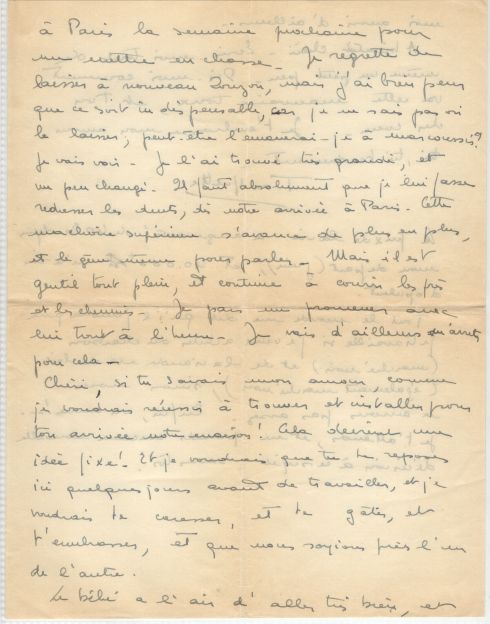 à Paris la semaine prochaine pour
me mettre en chasse - Je regrette de
laisser à nouveau Zouzou, mais j'ai bien peur
que ce soit indispensable, car je ne sais pas où
le laisser, peut-être l'emmenerai-je
Je vais voir - Je l'ai trouvé très grandi, et
un peu changé - Il faut absolument que je lui fasse
redresser les dents, dès notre arrivée à Paris - Cette
machoire supérieure s'avance de plus en plus,
et le gêne même pour parler - Mais il est
gentil tout plein, et continue à courir les prés
et les chemins - Je pars me promener avec
lui tout à l'heure - Je vais d'ailleurs m'arrêter
pour cela -
Chéri, si tu savais mon amour comme
je voudrais réussir à trouver et installer pour
ton arrivée notre maison! Cela devient une
idée fixe! Et je voudrais que tu te reposes
ici quelques jours avant de travailler, et je
voudrais te caresser, et te gâter, et
t'embrasser, et que nous soyions près l'un
de l'autre.
Le bébé a l'air d'aller très bien, et